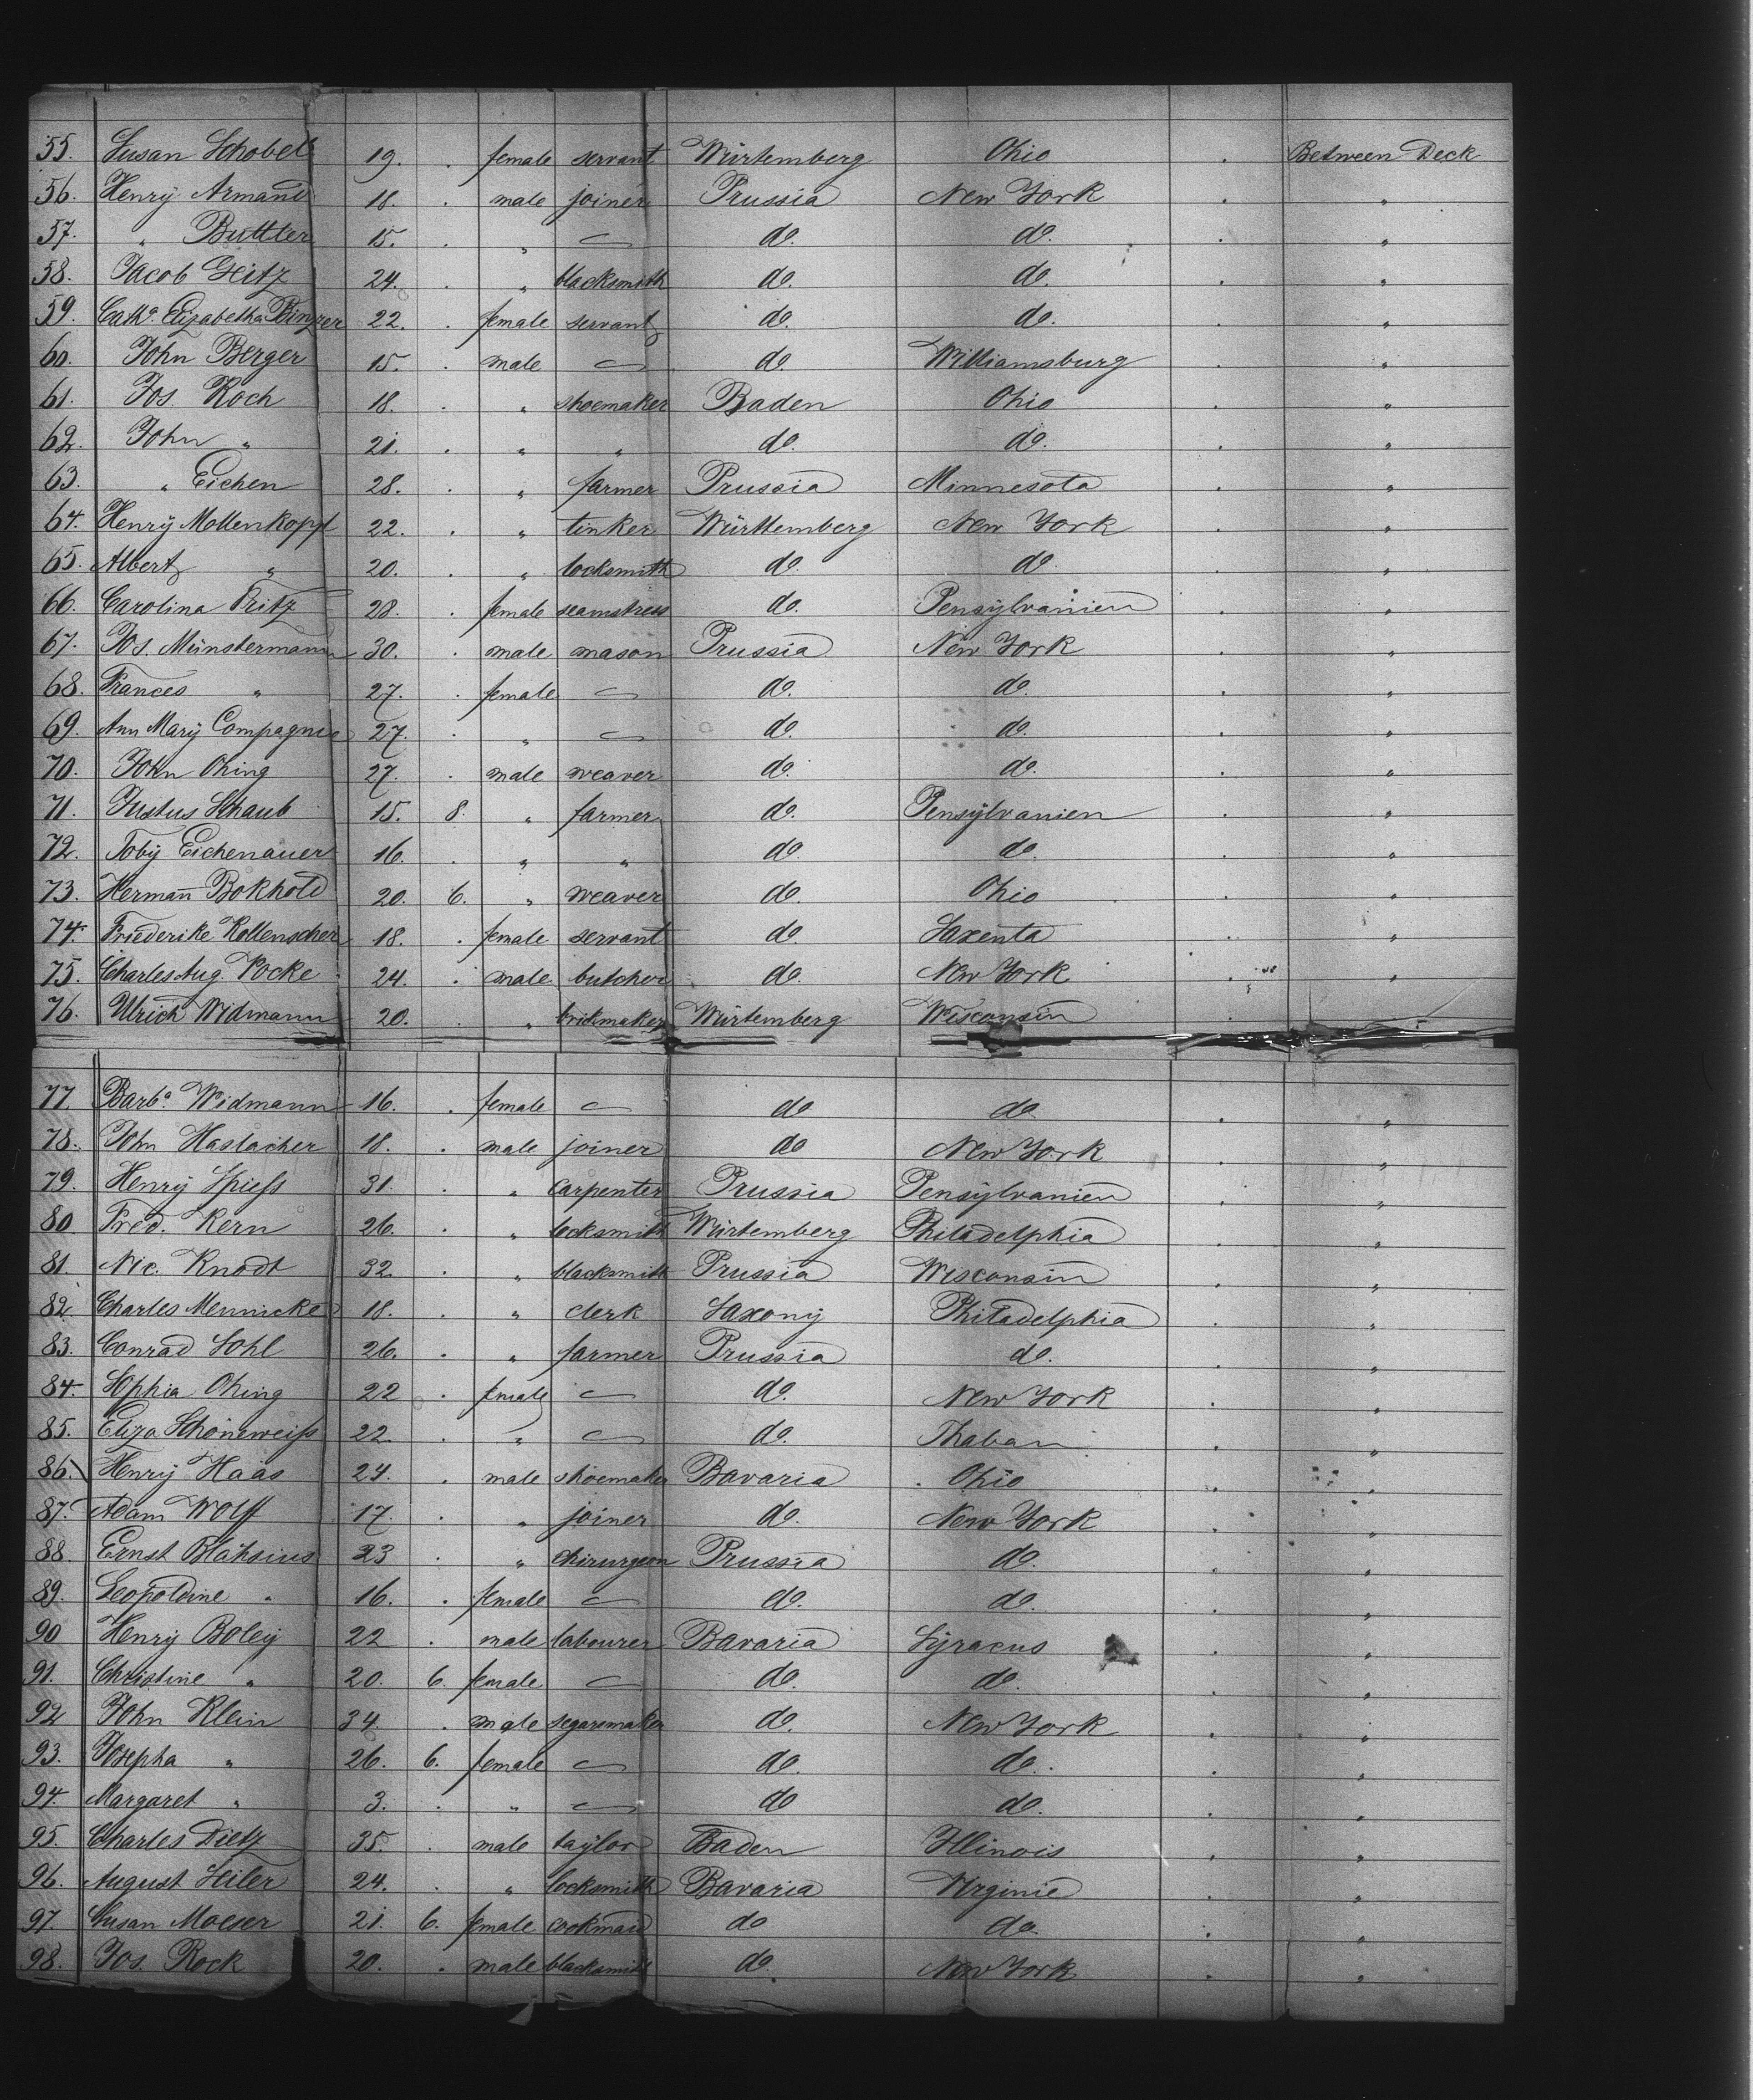 55. Susan Schobel 19. . female servant Würtemberg Ohio . Between Deck
56. Henrÿ Armand 18. . male joiner Prussia New York . "
57. " Buttler 15. . " — do. do. . "
58. Jacob Geitz 24. . " blacksmith do. do. . "
59. Cath.a Elizabetha Binzer 22. . female servant do. do. . "
60. John Berger 15. . male — do. Williamsburg . "
61. Jos. Koch 18. . " shoemaker Baden Ohio . "
62. John " 21. . " " do. do. . "
63. " Eichen 28. . " farmer Prussia Minnesota . "
64. Henrÿ Mollenkopf 22. . " tinker Württemberg New York . "
65. Albert " 20. . " locksmith do. do. . "
66. Carolina Fritz 28. . female seamstress do. Pensÿlvanien . "
67. Jos. Münstermann 30. . male mason Prussia New York . "
68. Frances " 27. . female — do. do. . "
69. Ann Marÿ Compagnie 27. . " — do. do. . "
70. John Oking 27. . male weaver do. do. . "
71. Justus Schaub 15. 8. " farmer do. Pensÿlvanien . "
72. Tobÿ Eichenauer 16. . " " do. do. . "
73. Herman̄ Bokhold 20. 6. " weaver do. Ohio . "
74. Friederike Kollenscher 18. . female servant do. Saxenta . "
75. Charles Aug. Pocke 24. . male butcher do. New York . "
76. Ulrich Widmann 20. . " brickmaker Würtemberg Wisconsin . "
77. Barb.a Widmann 16. . female — do do . "
78. John Haslacher 18. . male joiner do New York . "
79. Henrÿ Spiess 31. . " carpenter Prussia Pensÿlvanien . "
80. Fred. Kern 26. . " locksmith Würtemberg Philadelphia . "
81. Nic. Knodt 32. . " blacksmith Prussia Wisconsin . "
82. Charles Mennicke 18. . " clerk Saxonÿ Philadelphia . "
83. Conrad Sohl 26. . " farmer Prussia do. . "
84. Sophia Oking 22 . female — do. New York . "
85. Eliza Schönweiss 22. . " — do. Thaban . "
86. Henrÿ Haas 24. . male shoemaker Bavaria Ohio . "
87. Adam Wolff 17. . " joiner do. New York . "
88. Ernst Blähsius 23 . " chirurgeon Prussia do. . "
89. Leopoldine " 16. . female — do. do. . "
90 Henrÿ Boleÿ 22 . male labourer Bavaria Sÿracus . "
91. Christine " 20. 6. female — do. do. . "
92 John Klein 34. . male segarsmaker do. New York . "
93. Josepha " 26. 6. female — do. do. . "
94. Margaret " 3. . " — do do. . "
95. Charles Dietz 35. . male taÿlor Baden Illinois . "
96. August Seiler 24. . " locksmith Bavaria Virginie . "
97. Susan Moeser 21. 6. female cookmaid do do. . "
98. Jos. Rock 20. . male blacksmith do. New York . "